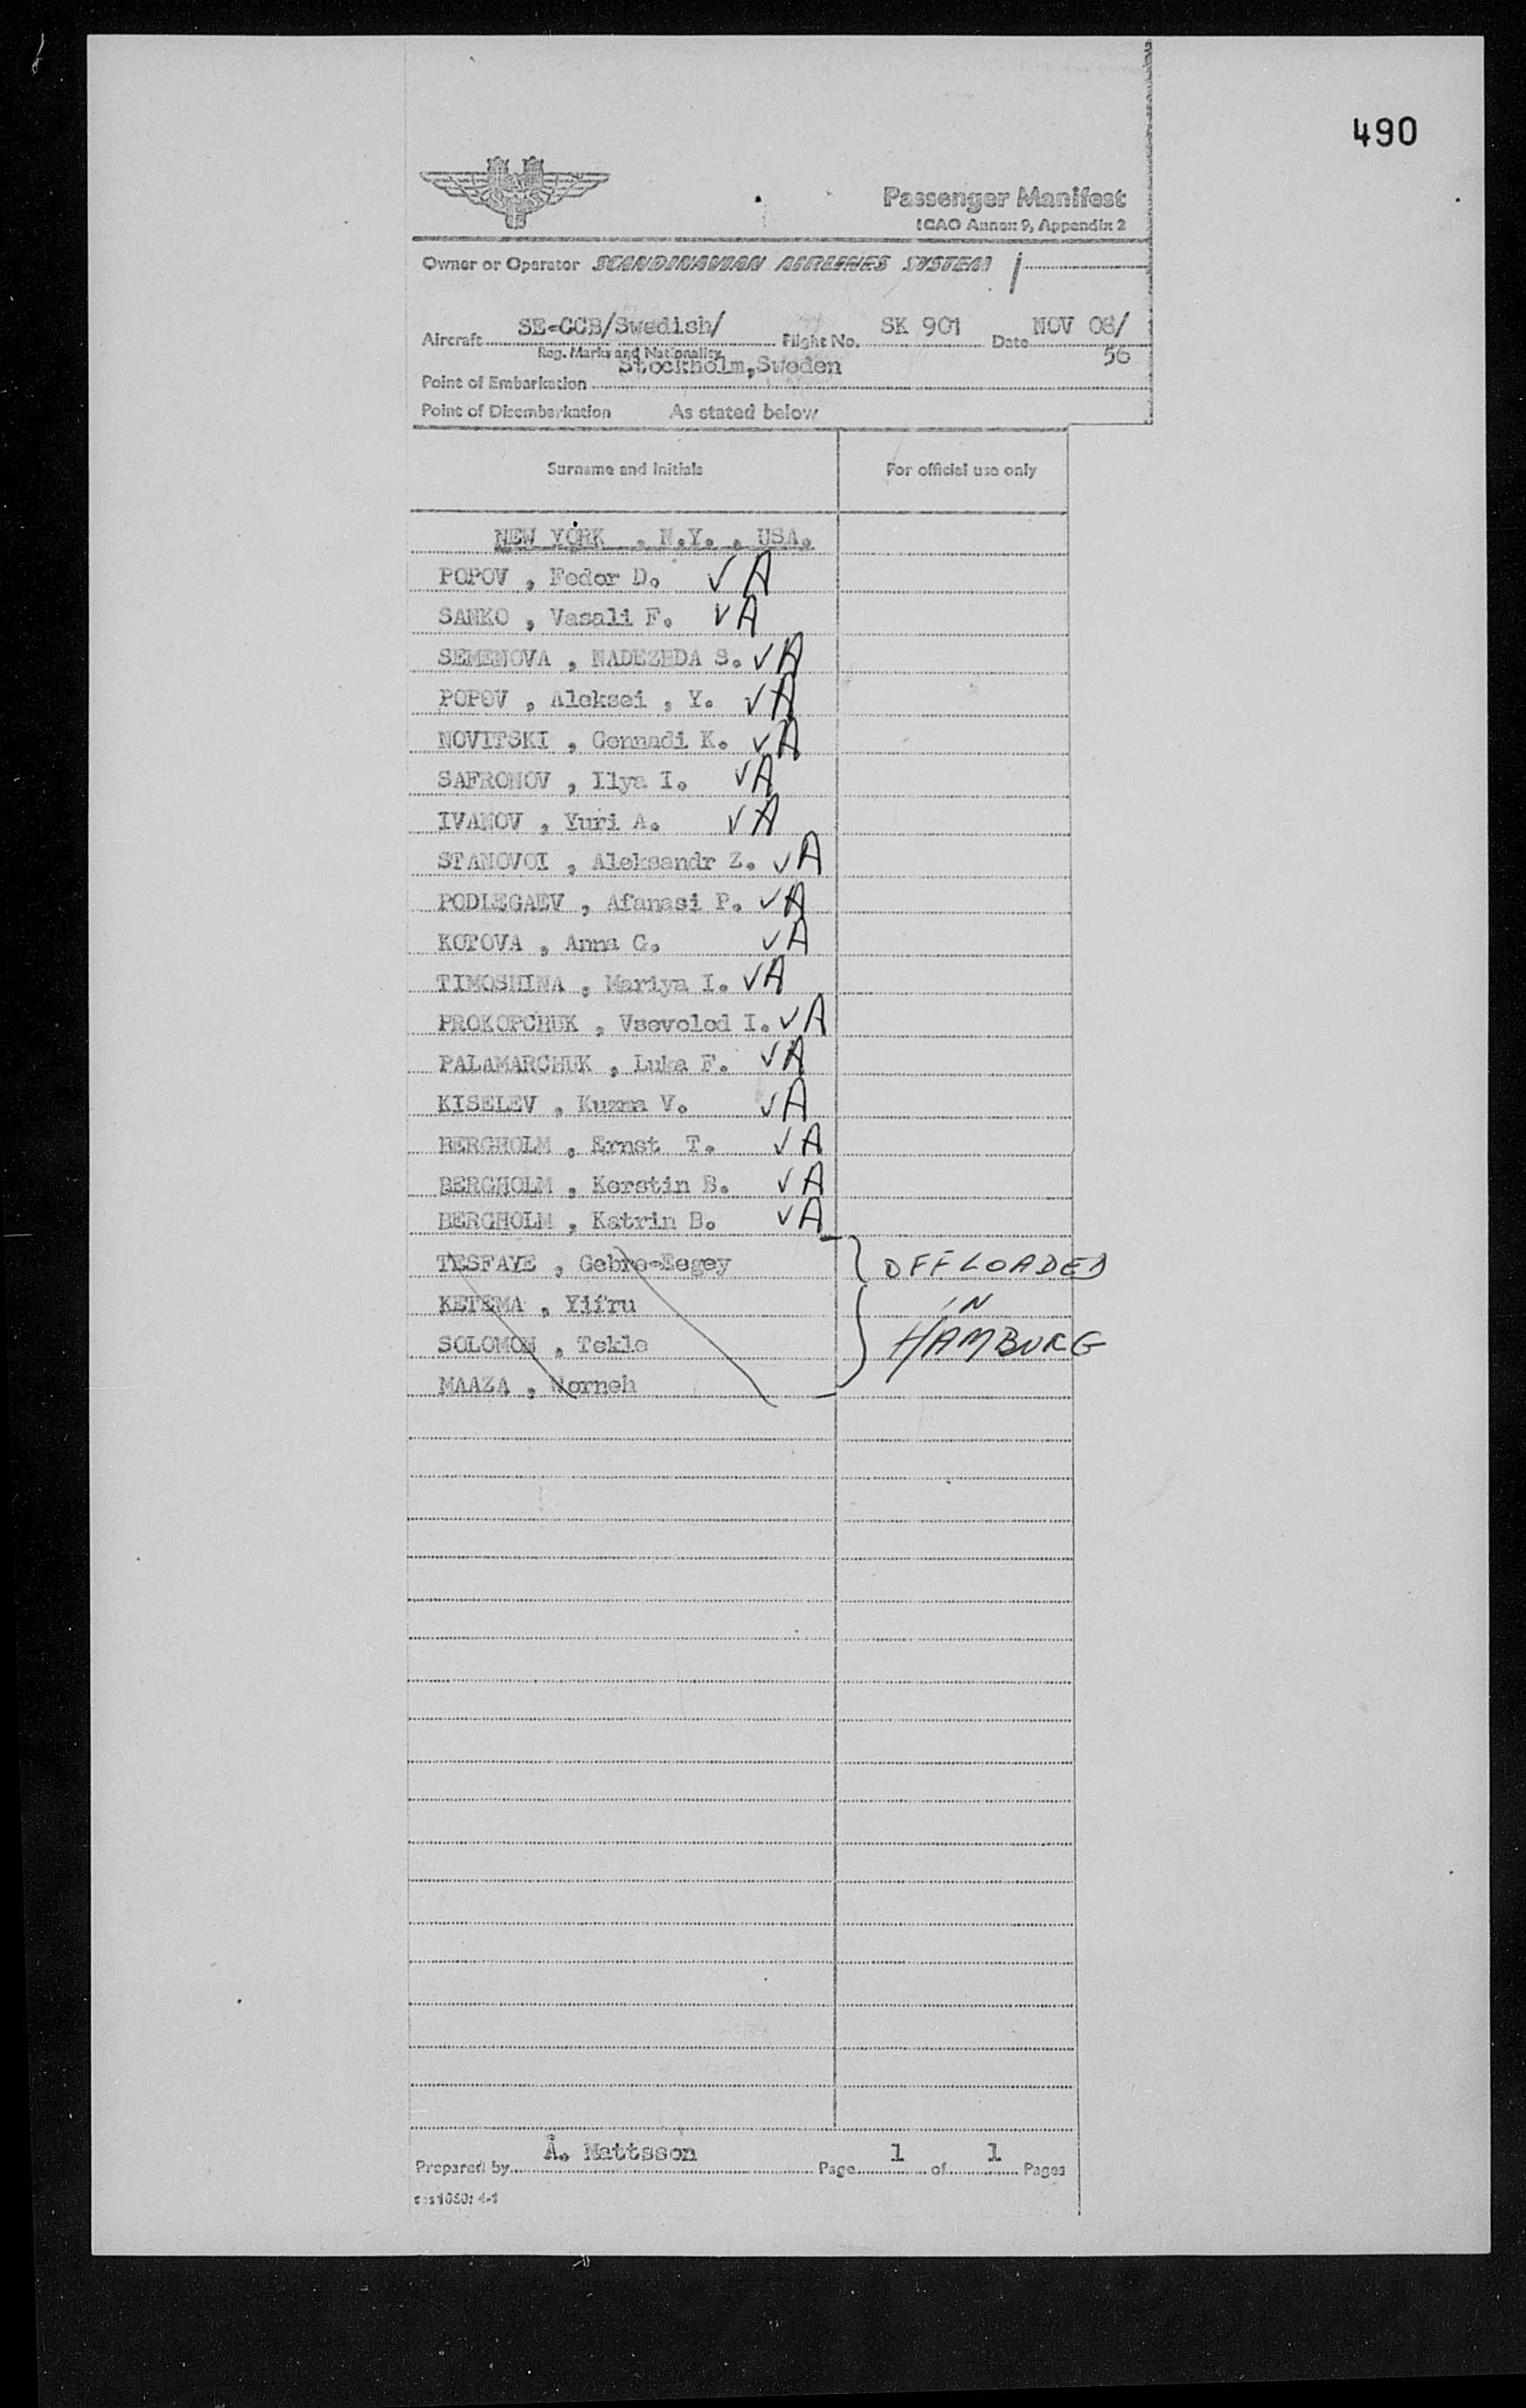 490
Passenger Manifest
ICAO Annex 9, Appendix 2
Owner or Operator SCANDINAVIAN AIRLINES SYSTEM
Aircraft SE-CCB/Swedish/ Flight No. SK 901 Date NOV 08/
56
Reg. Marks and Nationality
Point of Embarkation Stockholm,Sweden
Point of Disembarkation As stated below
Surname and Initials For official use only
NEW YORK , N.Y. , USA.
POPOV , Fedor D. ✓ A
SANKO , Vasali F. ✓ A
SEMENOVA , NADEZHDA S. ✓ A
POPOV , Aleksei , Y. ✓ A
NOVITSKI , Gennadi K. ✓ A
SAFRONOV , Ilya I. ✓ A
IVANOV , Yuri A. ✓ A
STANOVOI , Aleksandr Z. ✓ A
PODLEGAEV , Afanasi P. ✓ A
KOTOVA , Anna G. ✓ A
TIMOSHINA , Mariya I. ✓ A
PROKOPCHUK , Vsevolod I. ✓ A
PALAMARCHUK , Luka F. ✓ A
KISELEV , Kuzma V. ✓ A
BERGHOLM , Ernst T. ✓ A
BERGHOLM , Kerstin B. ✓ A
BERGHOLM , Katrin B. ✓ A
TESFAYE , Gebre-Eegey OFFLOADED
KETEMA , Yifru IN
SOLOMON , Tekle HAMBURG
MAAZA , Worneh
Prepared by Å. Mattsson Page 1 of 1 Pages